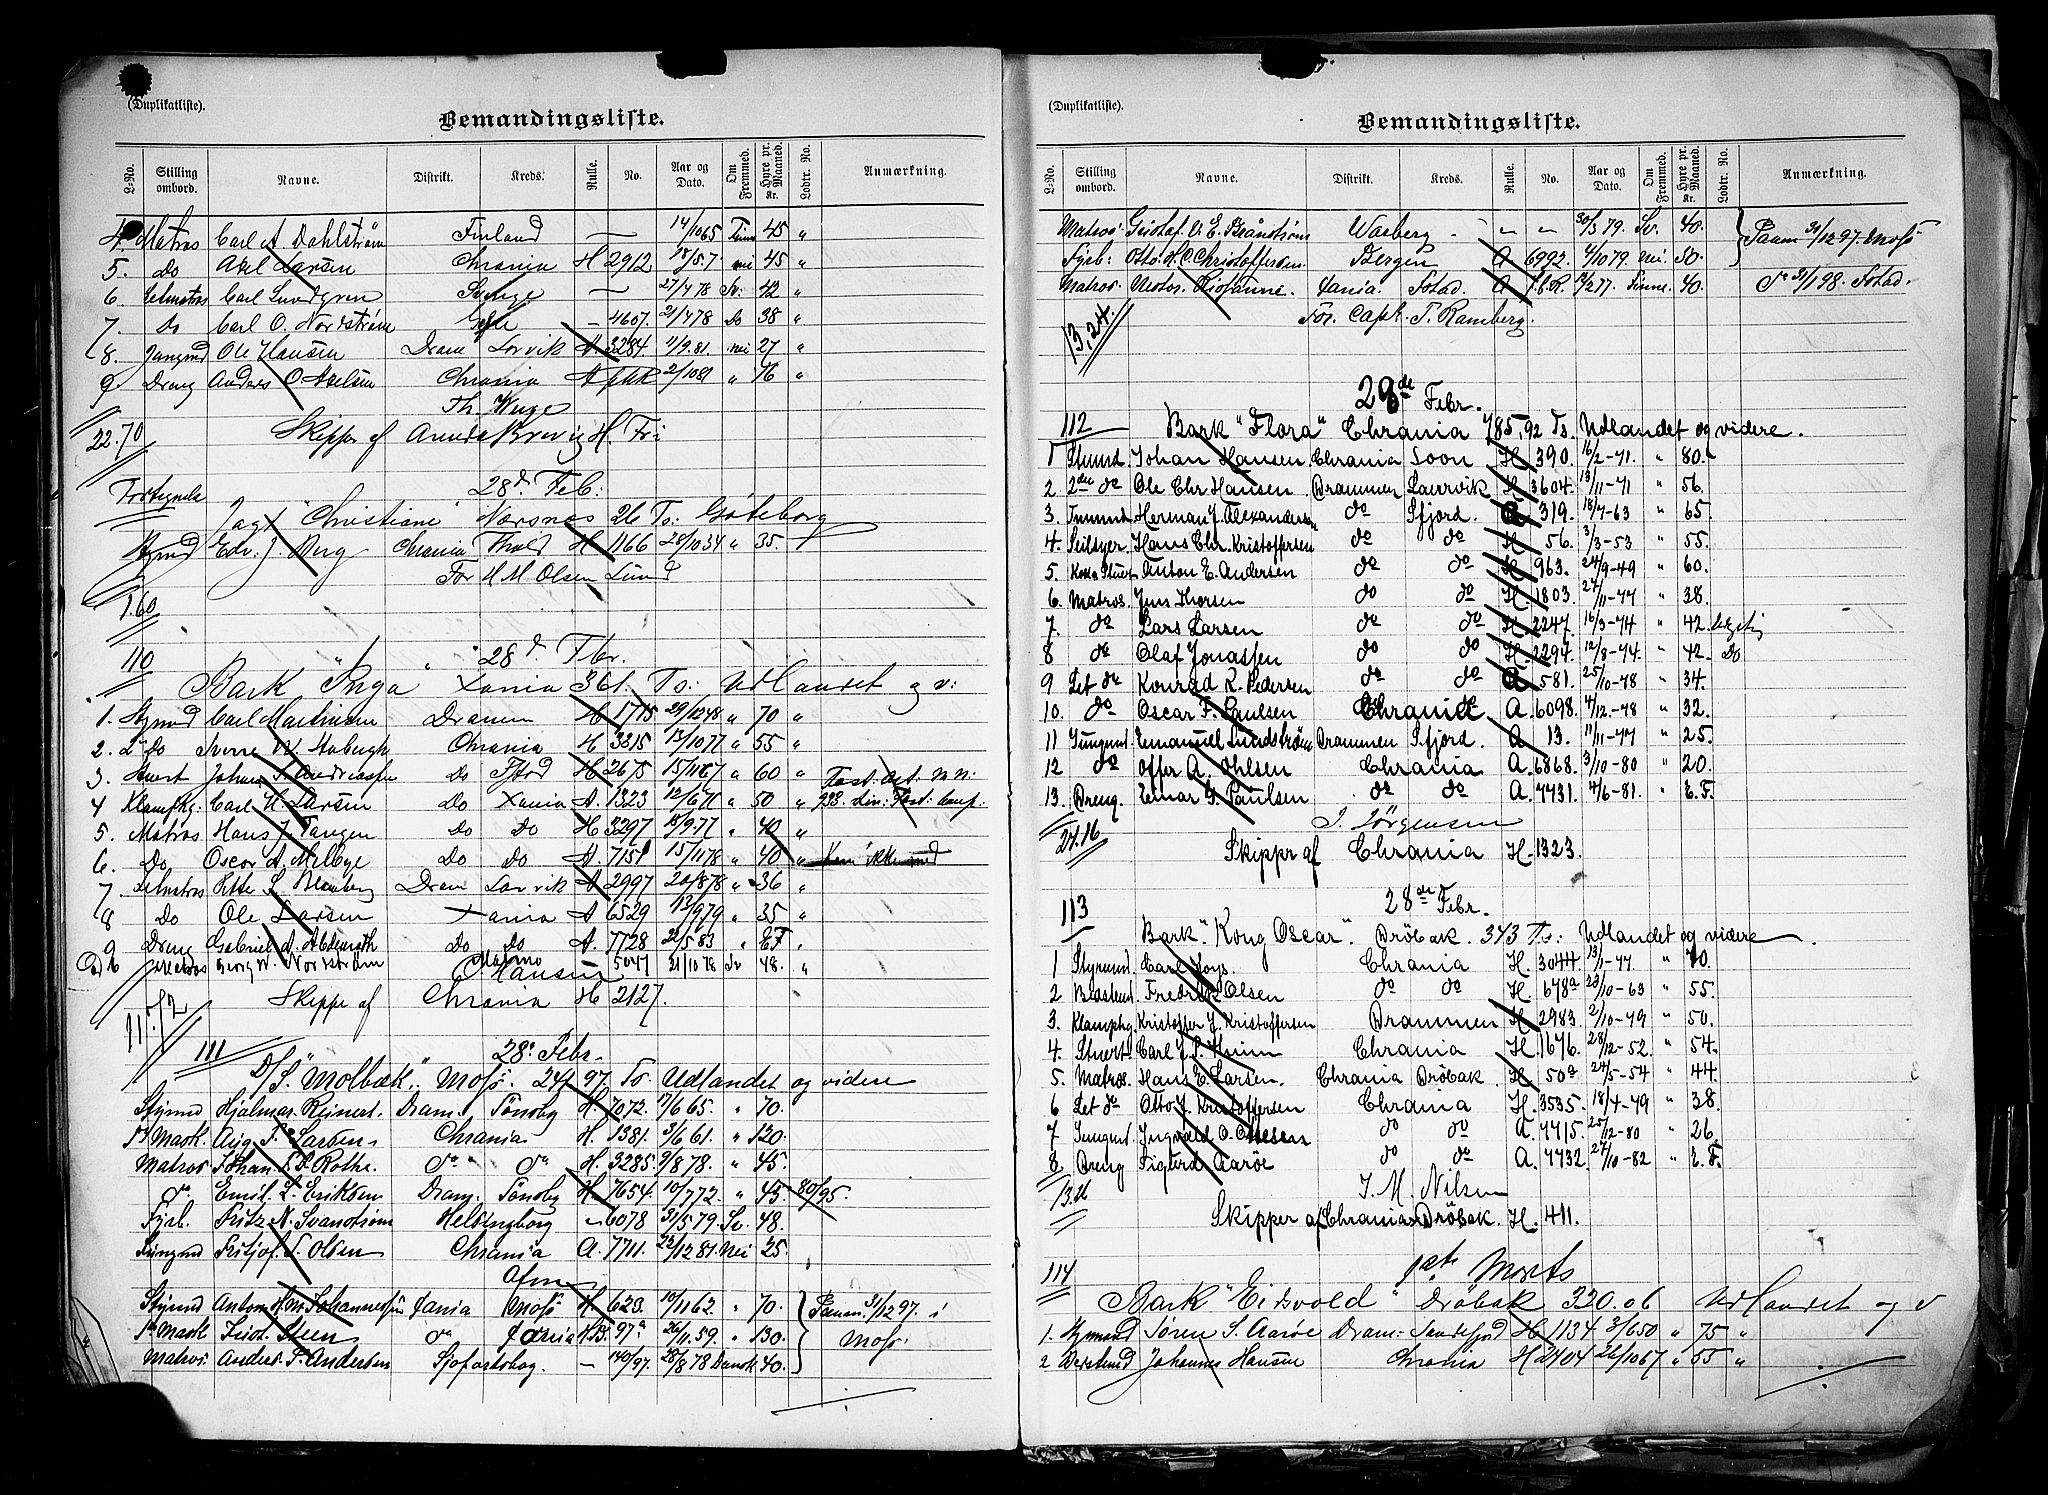 (Duplikatliste).
Bemandingsliste.
L-No. Stilling ombord. Navne. Distrikt. Kreds. Rulle. No. Aar og Dato. Om Fremmed. Hyre pr. Maaned. Kr. Lodtr. No. Anmærkning.
4. Matros Carl A. Dahlström Finland — 14/10 65 Finne 45 "
5. Do Axel Larsen Chrania H 2912 nei 45 "
6. Carl Lundgren — 27/4 78 Sv: 42 "
7. Do Carl O. Nordström Gefle — 4607. 21/4 78 Do 38 "
8. Jungmd Ole Hansen Dram Larvik A. 3284. 11/9. 81. nei 27 "
9 Dreng Anders O. Axelsen Chrania A 2/10 81 " 16 "
22.70 Skipper af
28d. Feb:
Jagt "Christiane" Narsnæs 26 Ts: Göteborg
Stymd Edv. J. Berg Chrania H 1166 28/10 34 " 35.
For H M Olsen Lund
1.60
110 28d. Fbr.
Bark "Inga" Xania 361. Ts: Udlandet og v:
1. Stymd Carl Martinsen Dramm H 1775 29/12 48 " 70 "
2. 2 Do Sverre W. Chrania H 3315 13/10 77 " 55 "
3. Stuert Johan S. Andreassen Do H 2675 15/11 67 " 60 "
4 Klamphg: Carl H. Larsen Do Xania A. 1323 12/6 71 " 50 "
5. Matros Hans J. Tangen Do Do H 3297 18/9. 77 " 40 "
6. Do Oscar A. Melbye Do Do A. 7151 15/11 78 " 40 " Kom ikke med
7. Letmatros L. Blomberg Dram Larvik A 2997 20/8 78 " 36 "
8 Do Ole Larsen Xania A 6529 13/9 79 " 35 "
9 Dreng Gabriel A. Do Do A. 7728 22/5 83 " E F "
Matros Georg W. Nordström Malmo 5047 21/10 78 Sv 48. "
O Hansen
11.72 Skipper af Chrania H 2127.
111 28. Febr.
D/S. "Molbæk". Moss. 24 97. Ts. Udlandet og videre
Stymd Hjalmar Reinert. Dram. Tönsbg H. 7072. 17/6 65. " 70.
1ste Mask. Aug. F. Larsen Chrania H. 1381. 3/6 61. " 120.
Matros Johan S. D. Rothe. do do H. 3285. 9/8 78. " 45.
do Emil. L. Eriksen Dram. Tönsbg H. 7654. 10/7 72. " 45. 80/95.
Fyrb. Fritz N. Svanström Helsingborg — 6078 31/5 79. Sv. 48.
Jungmd Fritjof. S. Olsen Chrania A. 7711. 22/12 81. Nei 25.
Stymd Anton H. Johannessen Xania Moss H. 623. 10/11 62. " 70. Paam. 31/12 97. i
1ste Mask. Steen do Xania 97a 26/11. 59. " 130. Moss.
Matros Anders. S. Andersen — 140/97. 28/8 78 Dansk 40.
(Duplikatliste).
Bemandingsliste.
L-No. Stilling ombord. Navne. Distrikt. Kreds. Rulle. No. Aar og Dato. Om Fremmed. Hyre pr. Maaned. Kr. Lodtr. No. Anmærkning.
Matros Gustaf. V. E. Brånström Warberg — — — 30/5 79. Sv. 40. Paam 31/12 97. Moss
Fyrb: Otto. H. C. Christoffersen. Bergen A 6992. 4/10 79. nei. 50.
Matros Nestor. Xania. Fstad. A f.b.R. 12/2 77. Finne. 40. do 31/1 98. Fstad.
For. Capt. T. Ramberg.
13,24.
28de Febr.
112 Bark "Flora" Chrania 785,92 Ts. Udlandet og videre.
1 Stmnd. Johan Hansen. Chrania Soon H. 390. 16/2-71. " 80.
2 2den do Ole Chr Hansen Drammen Laurvik H. 3604. 13/11-71 " 56.
3. Tmmnd Herman J. Alexandersen do Sfjord. A 319. 18/7-63 " 65.
4. Seilsyer. Hans Chr. Kristoffersen do do H. 56. 3/3-53 " 55.
5. Kok & Stuert Anton E. Andersen do do H. 963. 24/9-49 " 60.
6. Matros. Jens Thorsen do do H. 1803. 27/11-77 " 38.
7. do Lars Larsen do do H. 2247. 16/3-74 " 42.
8 do Olaf Jonassen do do H. 2294. 12/8-74. " 42. Do
9 Let do Konrad K. Pedersen do do A 581. 25/10-78 " 34.
10. do Oscar F. Paulsen Chrania A. 6098. 4/12-78 " 32.
11 Jungmd. Emanuel Lundström Drammen Sfjord. A 13. 11/11-77 " 25.
12 do Offer A. Ohlsen Chrania A. 6868. 3/10-80 " 20.
13. Dreng. Einar G. Paulsen do do A. 7731. 4/6-81. " E. F.
J. Jörgensen
27.16 Skippr af Chrania H. 1323.
28de Febr.
113 Bark "Kong Oscar". Dröbak. 343 Ts: Udlandet og videre.
1 Styrmd. Carl Hoys. Chrania H. 3044. 13/1-77. " 70.
2 Bdstmd. Fredrik Olsen do do H. 678a 28/10-63 " 55.
3. Klamphg. Kristoffer J. Kristoffersen Drammen H 2983. 2/10-79 " 50.
4. Stuert. Carl J. S. Chrania H. 1676. 28/12-52. " 54.
5. Matros. Hans E. Larsen. Chrania Dröbak. H 50a 24/5-54 " 44.
6 Let do Otto J. Kristoffersen Chrania H. 3535. 18/4-79 " 38.
7 Jungmd. Ingvald O. Olsen do do A. 7715. 25/12-80 " 26.
8 Dreng Sigurd Aarøe do do A. 7732. 27/10-82 " E. F.
13.26 J. M. Nilsen
Skipper af Chrania Dröbak. H. 411.
114 1ste Marts
Bark "Eidsvold" Dröbak 320.06 Udlandet og v
1. Stymand Sören S. Aaröe Dram: Sandefjod H 1134 3/6 50 " 75 "
2 Johannes Hansen Chrania H 2404 26/10 67 " 55 "